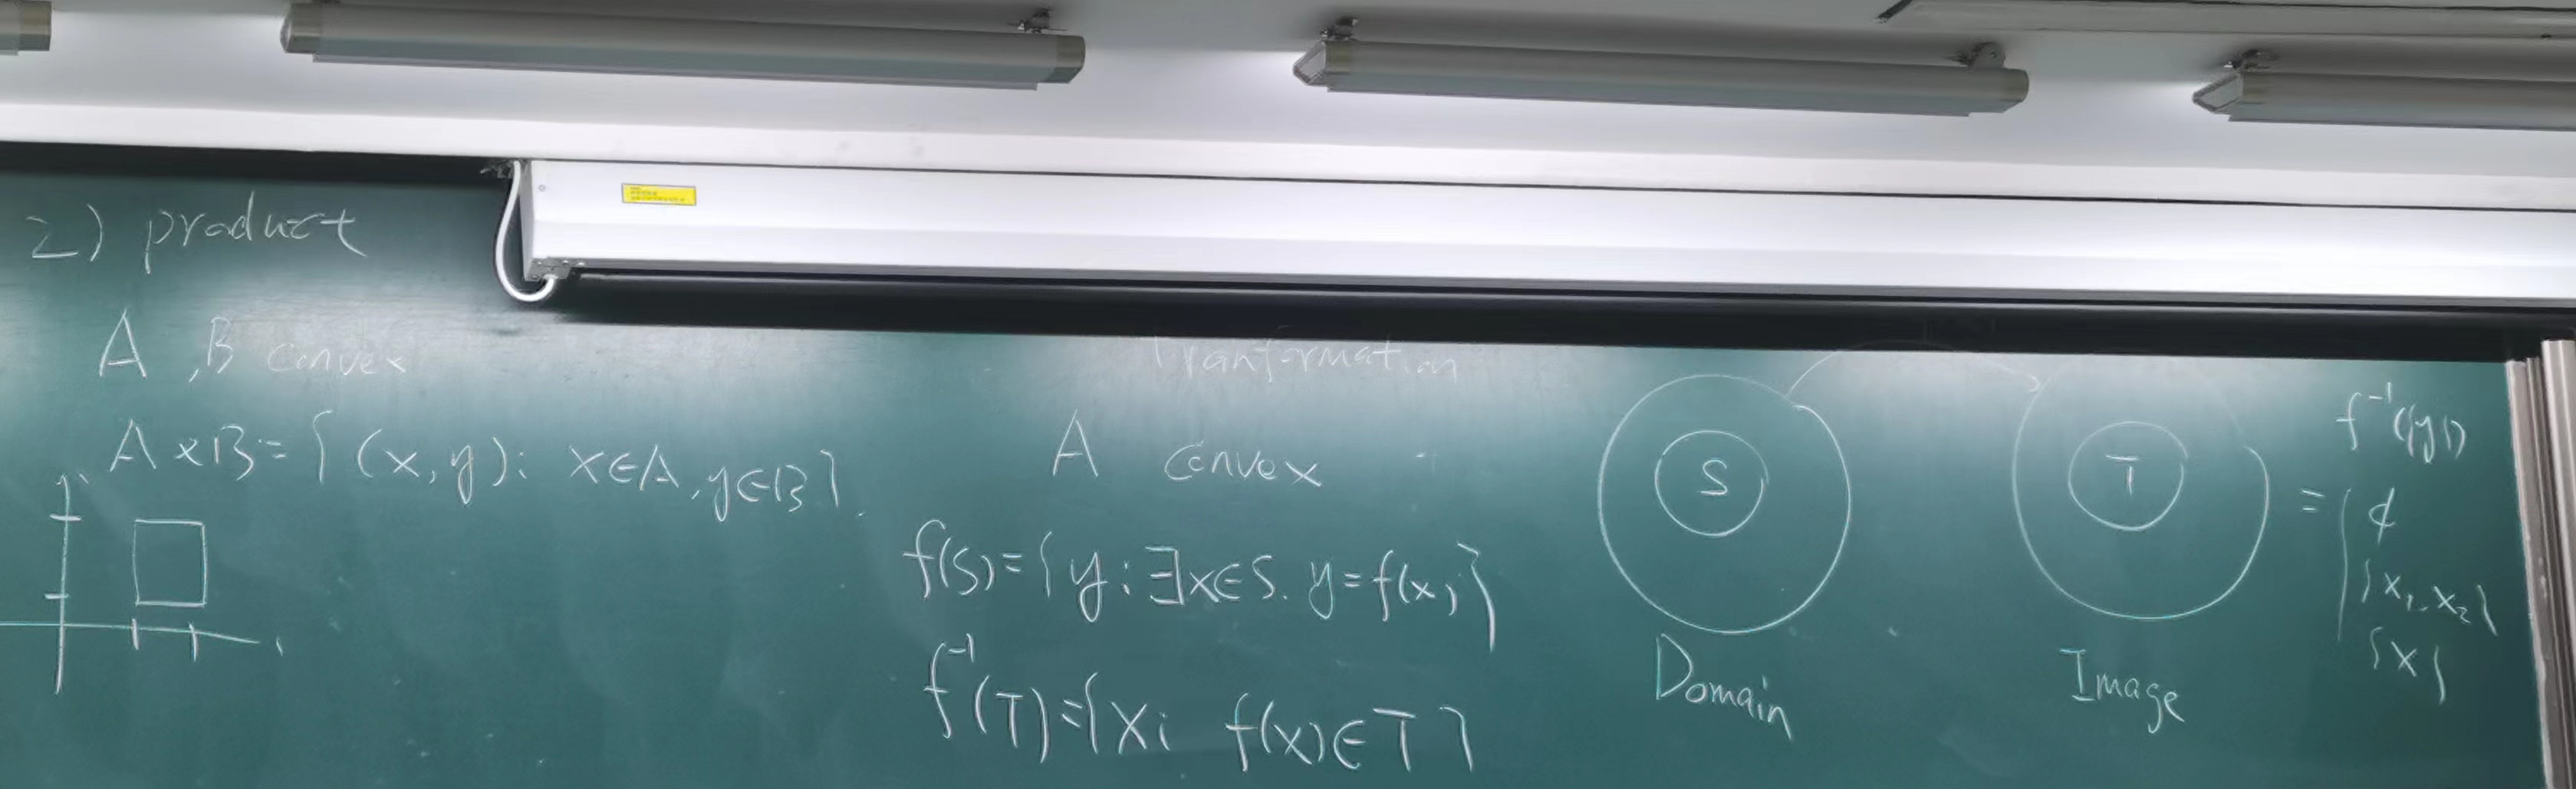 2) product
A , B convex
A × B = { (x, y) : x ∈ A , y ∈ B } .
Tranformation
A convex
f(S) = { y : ∃ x ∈ S . y = f(x) }
f⁻¹(T) = { x : f(x) ∈ T }
S
Domain
T
Image
f⁻¹({y})
= { ¢
{ x₁, x₂ }
{ x }